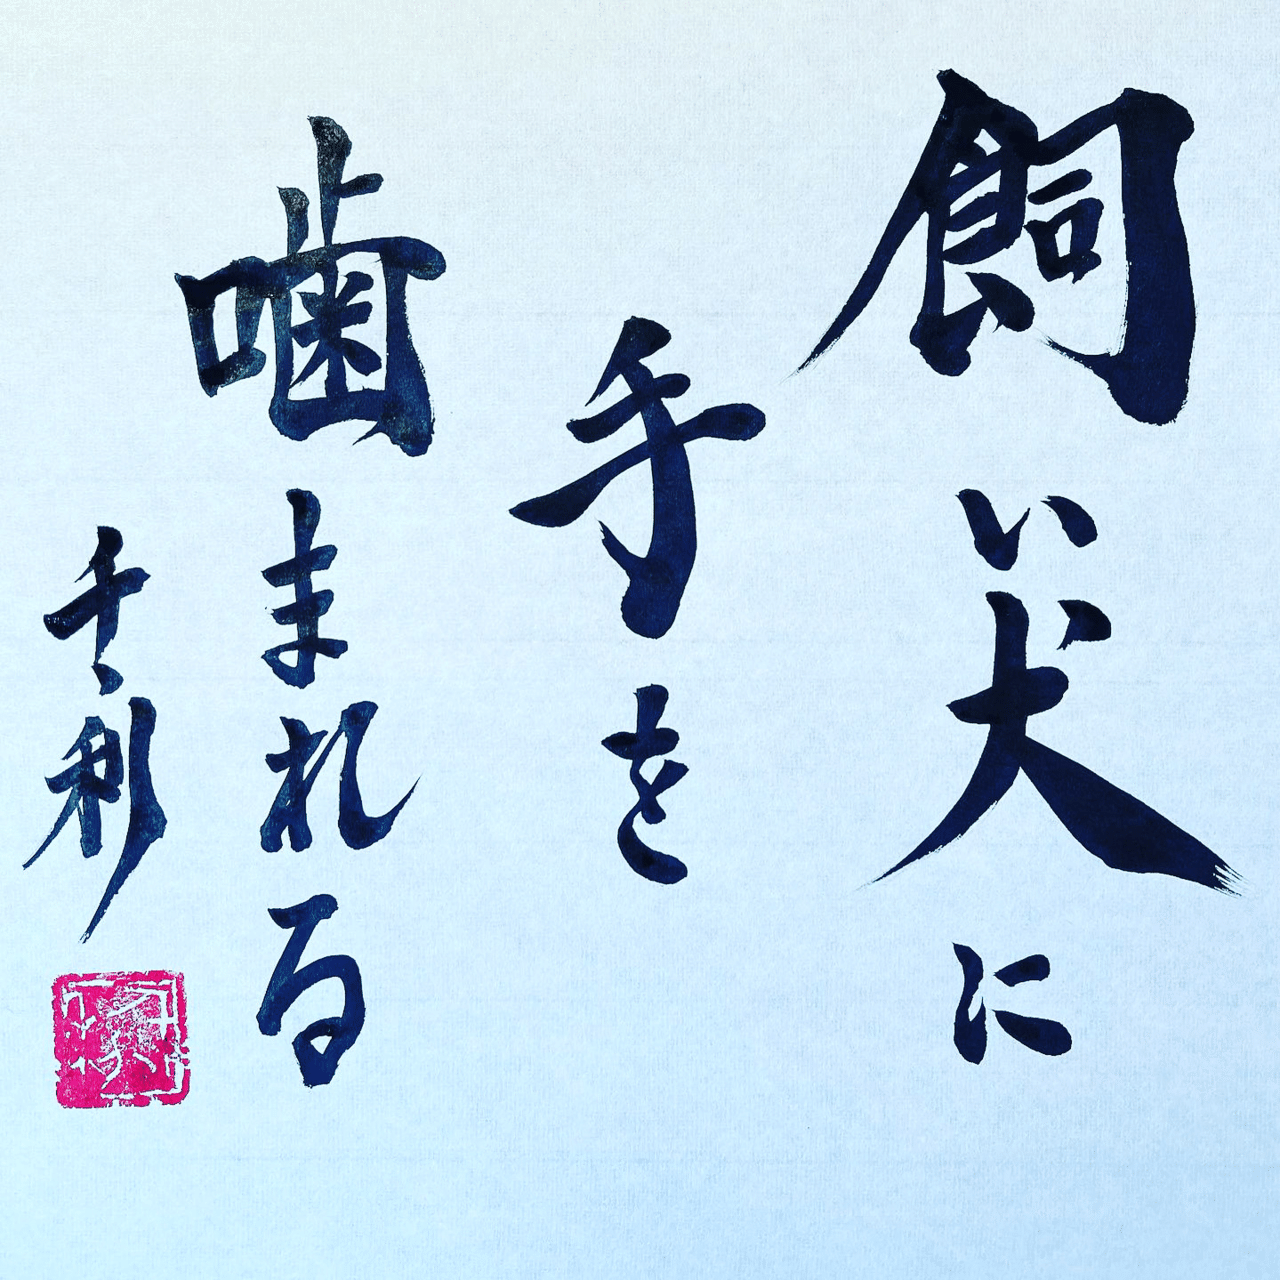 飼い犬に
手を
噛まれる
千利